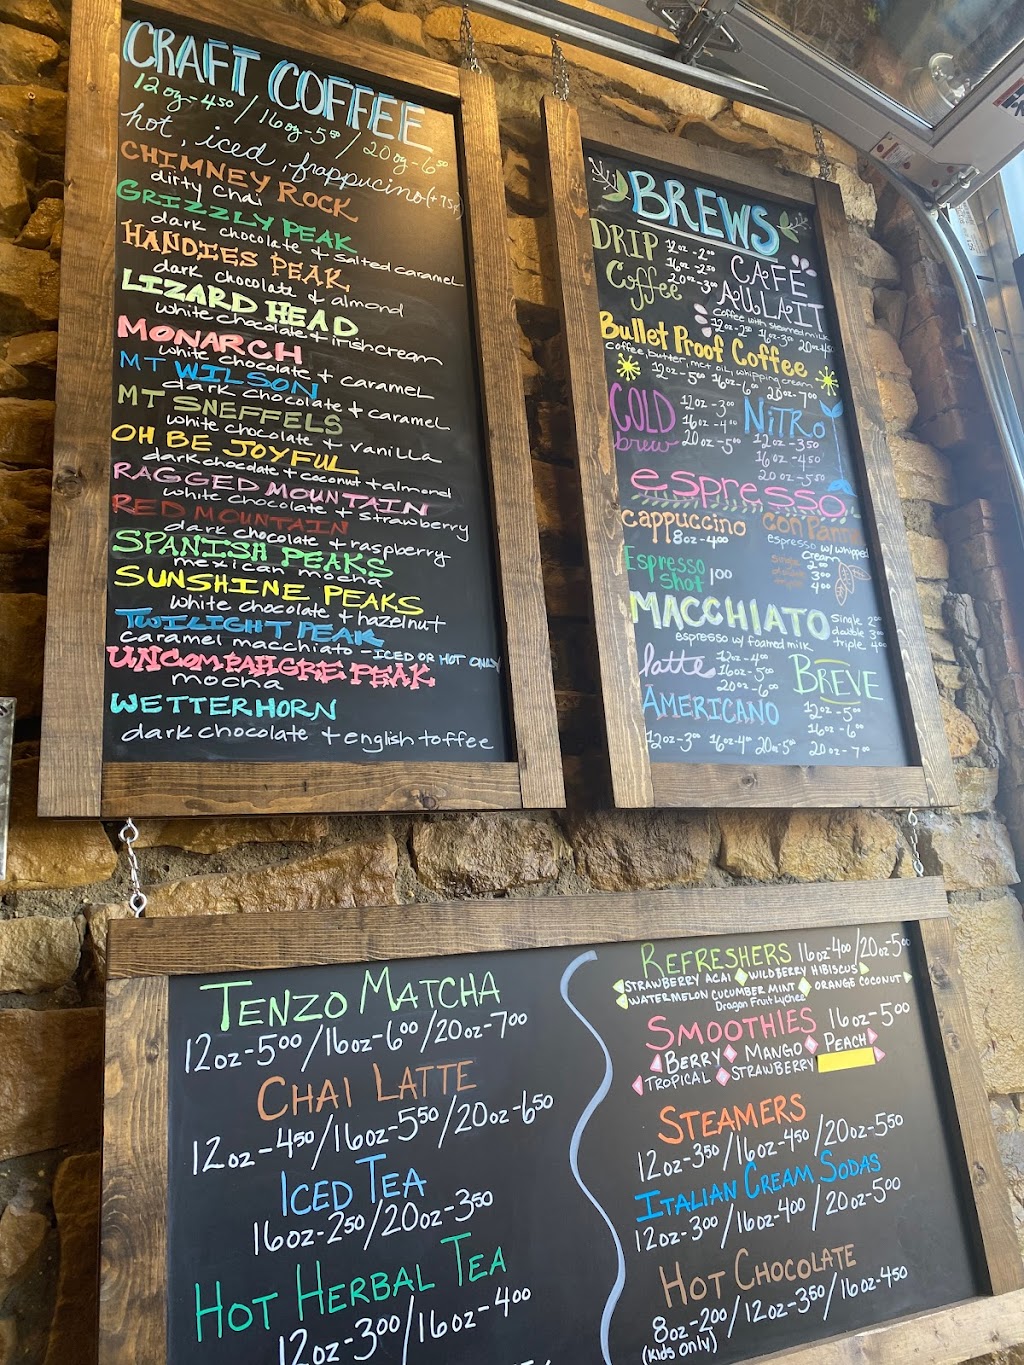 CRAFT COFFEE
12oz-4.50 / 16oz-5.50 / 20oz-6.50
hot, iced, frappucino (+75¢)
CHIMNEY ROCK
dirty chai
GRIZZLY PEAK
dark chocolate & salted caramel
HANDIES PEAK
dark chocolate & almond
LIZARD HEAD
white chocolate & irish cream
MONARCH
white chocolate + caramel
MT WILSON
dark chocolate & caramel
MT SNEFFELS
white chocolate + vanilla
OH BE JOYFUL
dark chocolate + coconut + almond
RAGGED MOUNTAIN
white chocolate + strawberry
RED MOUNTAIN
dark chocolate + raspberry
SPANISH PEAKS
mexican mocha
SUNSHINE PEAKS
white chocolate + hazelnut
TWILIGHT PEAK
caramel macchiato - ICED OR HOT ONLY
UNCOMPAHGRE PEAK
mocha
WETTERHORN
dark chocolate + english toffee
BREWS
DRIP Coffee
12oz-2.00
16oz-2.50
20oz-3.00
CAFÉ AU LAIT
coffee with steamed milk
16oz-3.50 20oz-4.50
Bullet Proof Coffee
coffee, butter, mct oil, whipping cream
12oz-5.00 16oz-6.00 20oz-7.00
COLD brew
12oz-3.00
16oz-4.00
20oz-5.00
NiTRo
12oz-3.50
16oz-4.50
20oz-5.50
espresso
cappuccino
8oz-4.00
con Panna
espresso w/ whipped cream
single 2.00
double 3.00
triple 4.00
Espresso shot 1.00
MACCHIATO
espresso w/ foamed milk
single 2.00
double 3.00
triple 4.00
latte
12oz-4.00
16oz-5.00
20oz-6.00
BREVE
12oz-5.00
16oz-6.00
20oz-7.00
AMERICANO
12oz-3.00 16oz-4.00 20oz-5.00
TENZO MATCHA
12oz-5.00/16oz-6.00/20oz-7.00
CHAI LATTE
12oz-4.50/16oz-5.50/20oz-6.50
ICED TEA
16oz-2.50/20oz-3.50
HOT HERBAL TEA
12oz-3.00/16oz-4.00
REFRESHERS 16oz-4.00/20oz-5.00
STRAWBERRY ACAI WILDBERRY HIBISCUS
WATERMELON CUCUMBER MINT ORANGE COCONUT
Dragon Fruit Lychee
SMOOTHIES 16oz-5.00
BERRY MANGO PEACH
TROPICAL STRAWBERRY
STEAMERS
12oz-3.50/16oz-4.50/20oz-5.50
ITALIAN CREAM SODAS
12oz-3.00/16oz-4.00/20oz-5.00
HOT CHOCOLATE
8oz-2.00/12oz-3.50/16oz-4.50
(kids only)